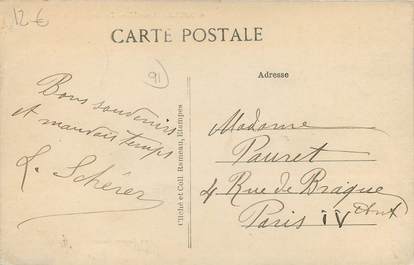 12 €
CARTE POSTALE
91
Adresse
Bons souvenirs
et mauvais temps
L. Schérer
Cliché et Coll. Rameau, Etampes
Madame
Pauret
4 Rue de Braque
Paris IV